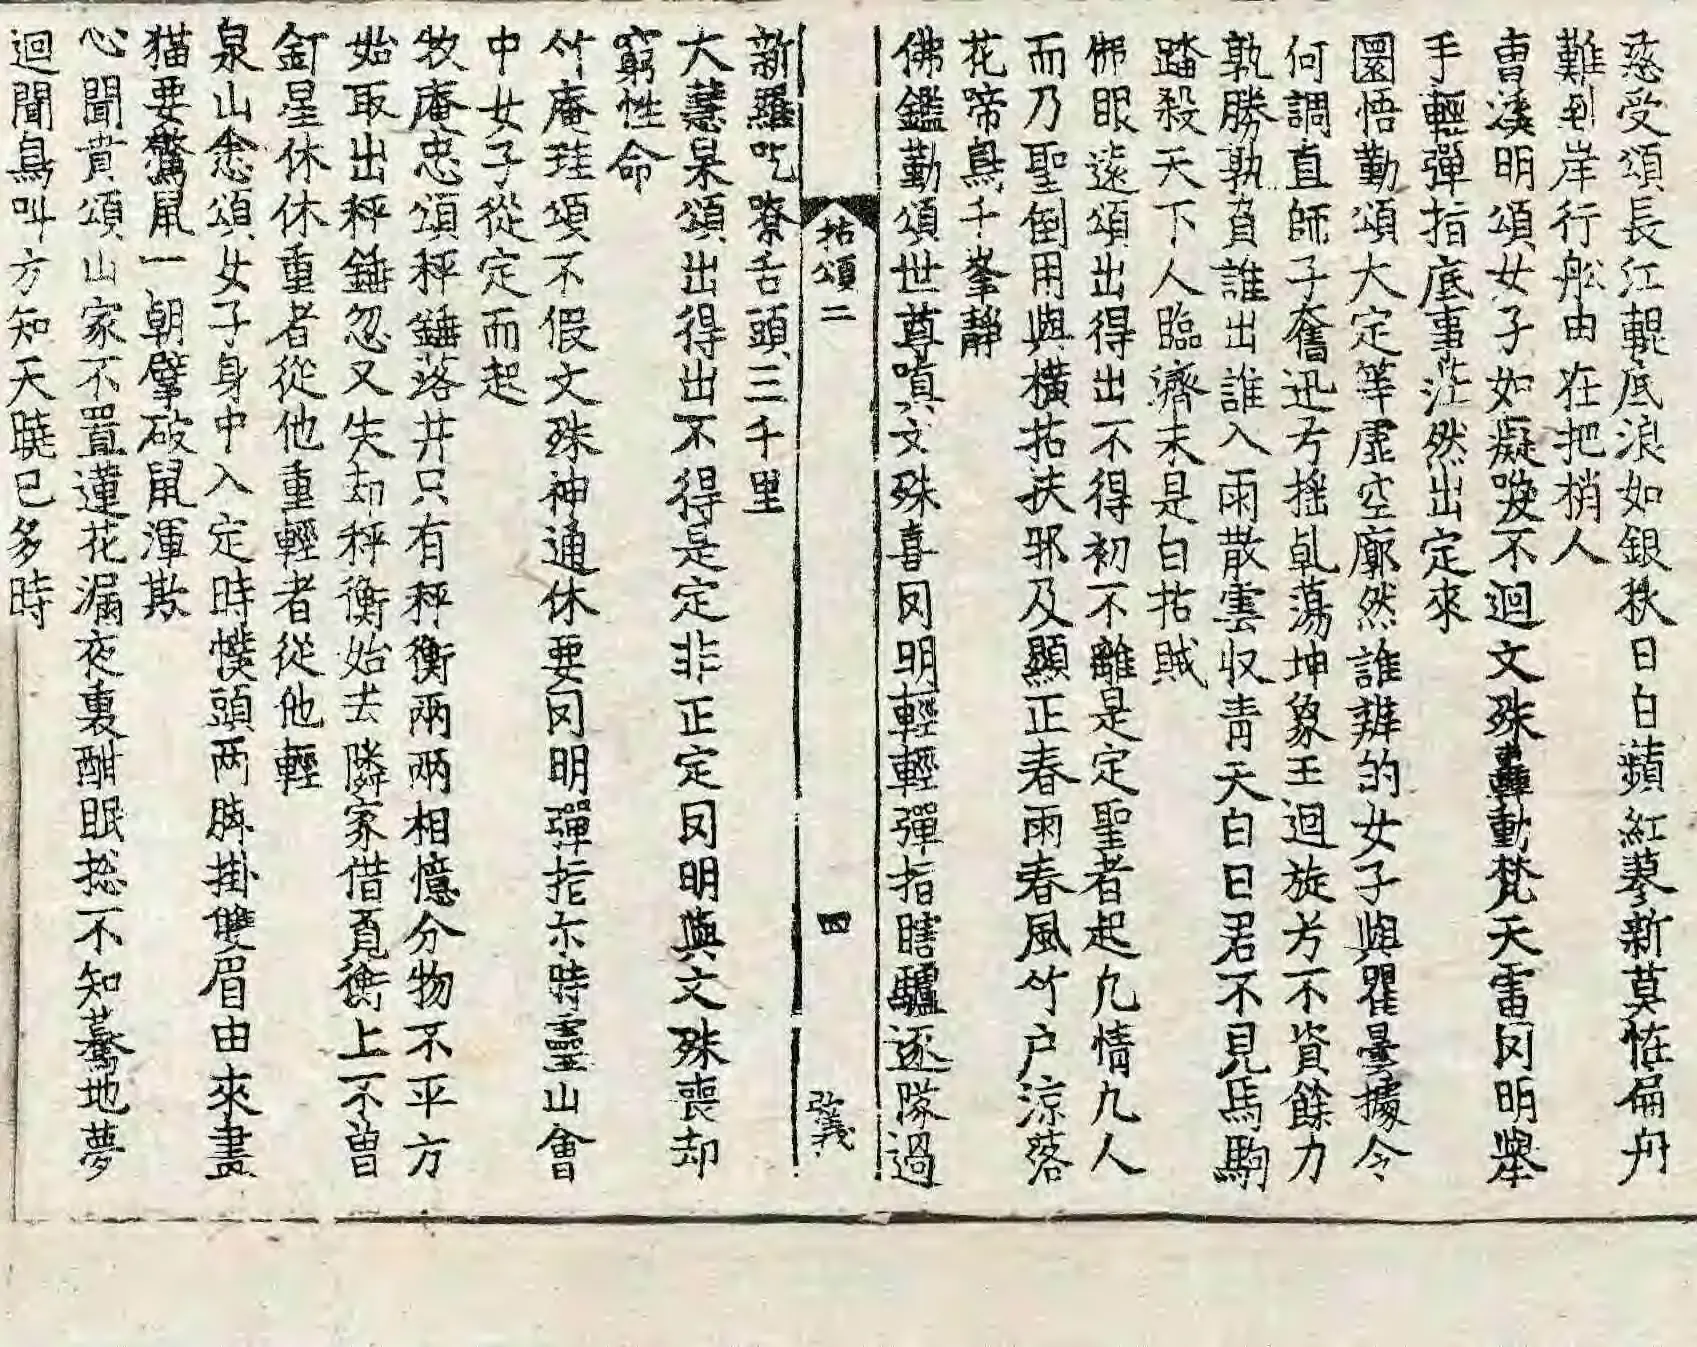 慈受頌長江輥底浪如銀秋日白蘋紅蓼新莫恠扁舟
難到岸行舩由在把梢人
曺溪明頌女子如癡喚不迴文殊轟動梵天雷罔明舉
手輕彈指底事茫然出定來
圜悟勤頌大定等虛空廓然誰辨的女子與瞿曇據令
何調直師子奮迅兮搖乹蕩坤象王迴旋兮不資餘力
孰勝孰負誰出誰入雨散雲収青天白日君不見馬駒
踏殺天下人臨濟未是白拈賊
佛眼遠頌出得出不得初不離是定聖者起凢情凢人
而乃聖倒用與橫拈扶邪及顯正春雨春風竹户涼落
花啼鳥千峯靜
佛鑑勤頌世尊嗔文殊喜罔明輕輕彈指瞎驢逐隊過
拈頌二
四
弘義
新羅吃嘹舌頭三千里
大慧杲頌出得出不得是定非正定罔明與文殊喪却
窮性命
竹庵珪頌不假文殊神通休要罔明彈指尓時靈山會
中女子從定而起
牧庵忠頌秤錘落井只有秤衡兩兩相憶分物不平方
始取出秤錘忽又失却秤衡始去隣家借覓衡上不曽
釘星休休重者從他重輕者從他輕
泉山悆頌女子身中入定時幞頭两脚掛雙眉由來畫
猫要驚鼠一朝擘破鼠渾欺
心聞賁頌山家不置蓮花漏夜裏酣眠捴不知驀地夢
迴聞鳥叫方知天曉已多時